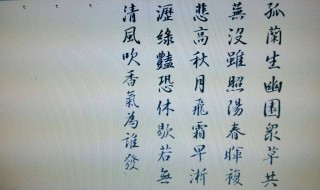 孤蘭生幽園眾草共
蕪沒雖照陽春暉複
悲高秋月飛霜早淅
瀝綠豔恐休歇若無
清風吹香氣為誰發